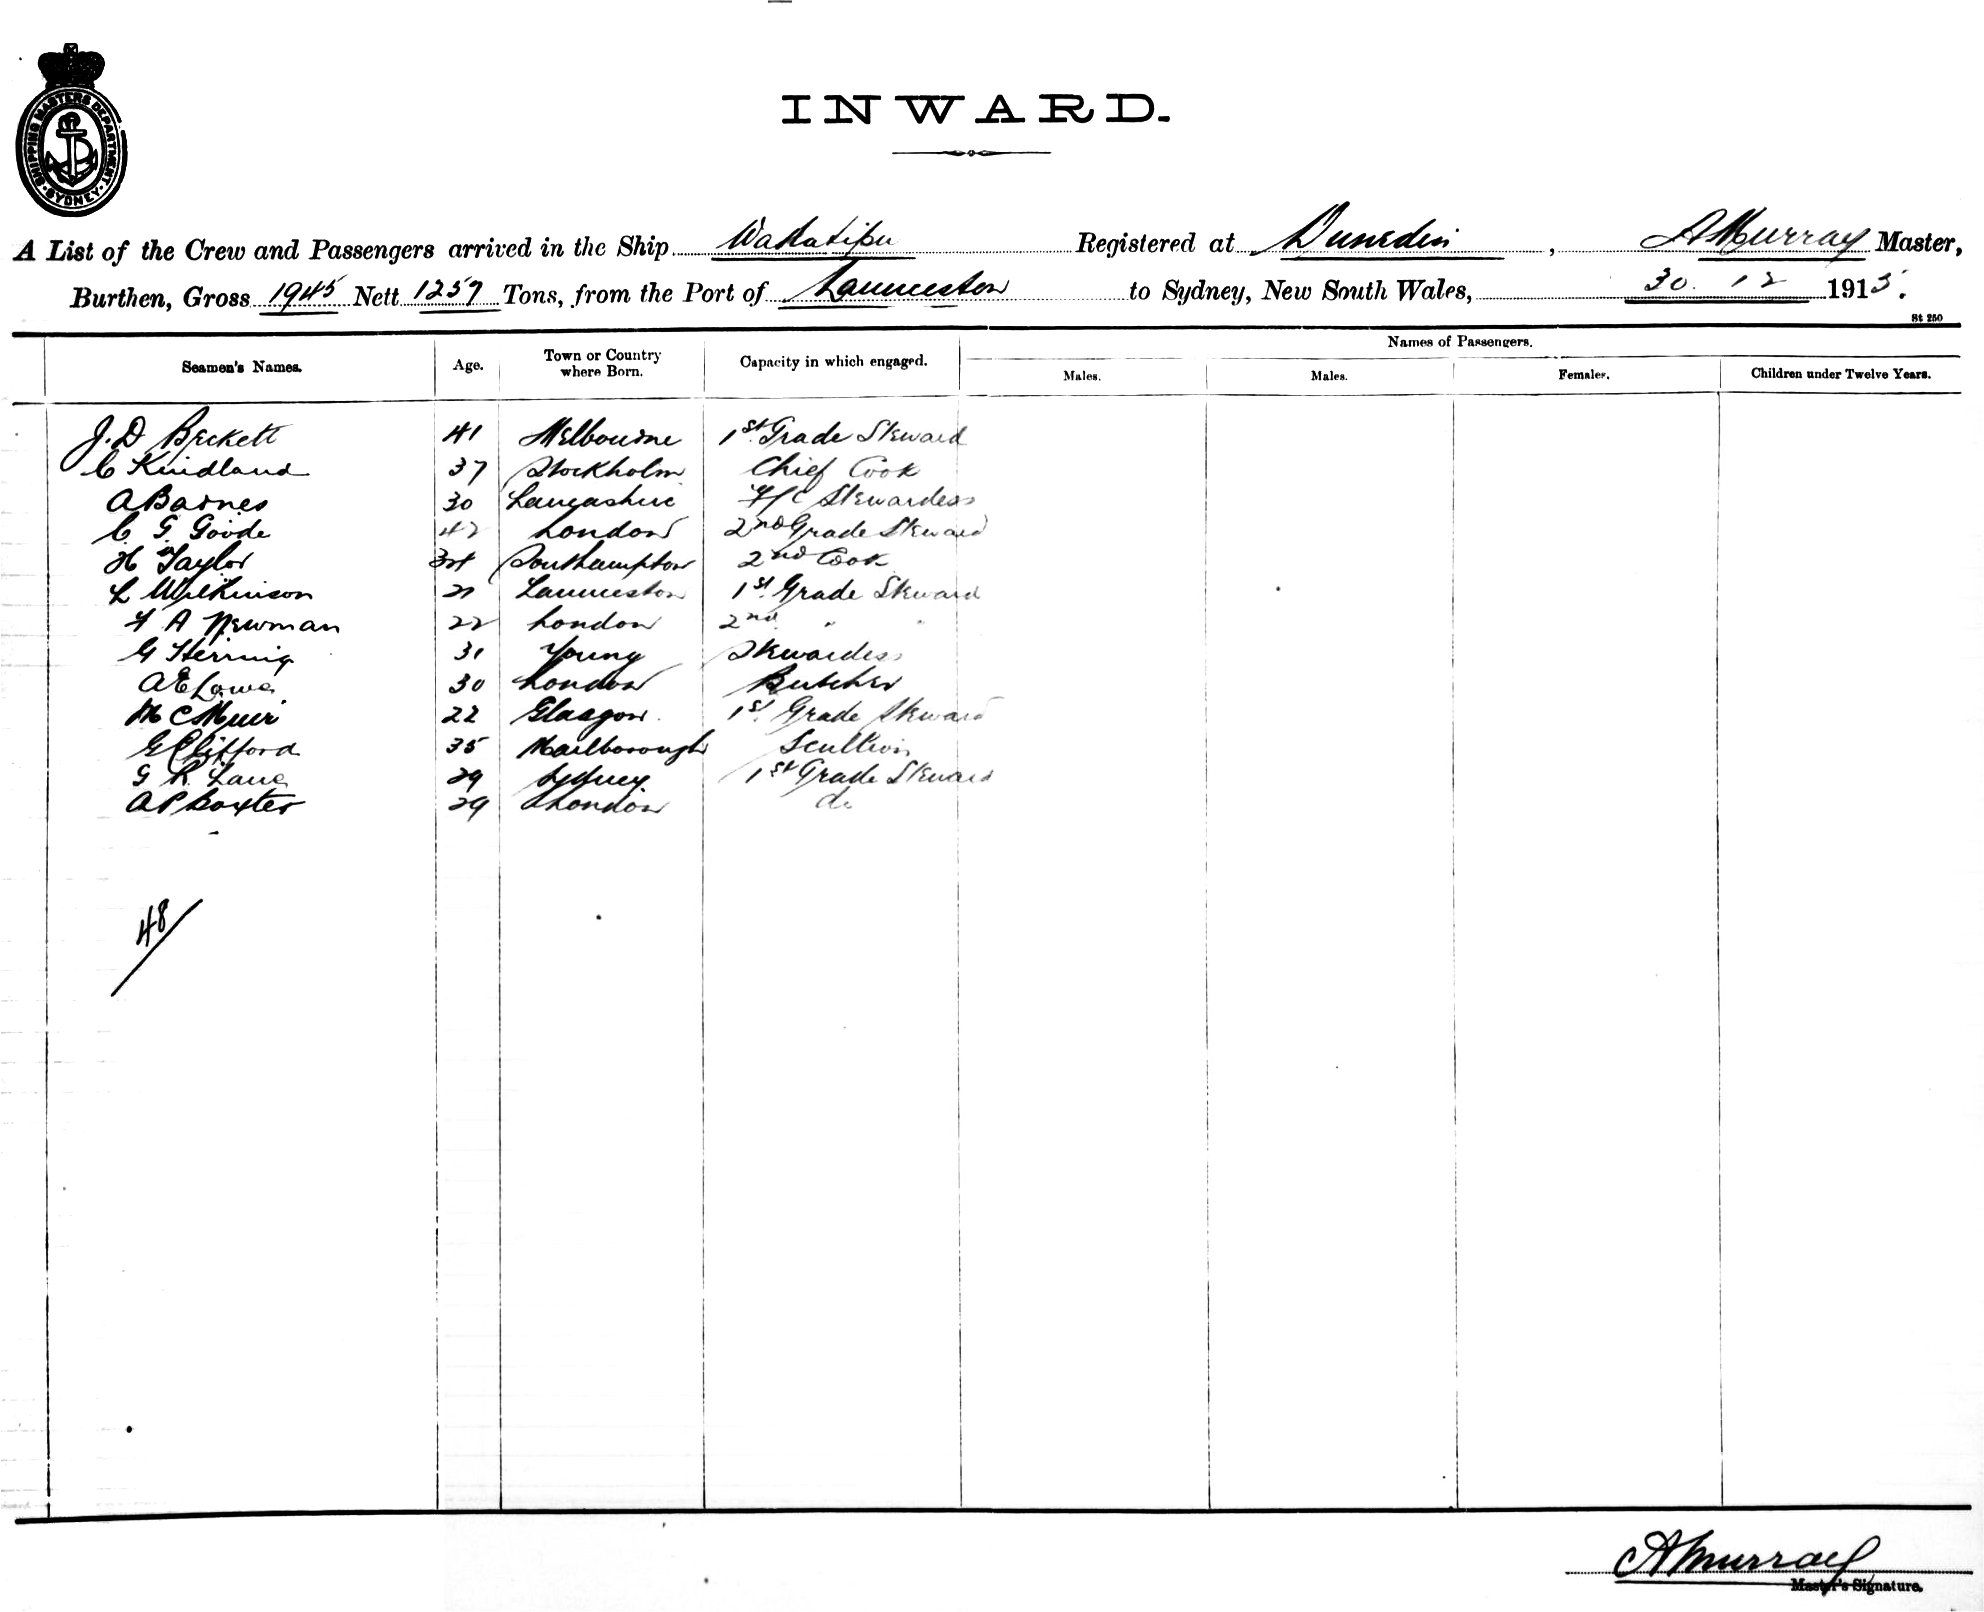 SHIPPING MASTERS DEPARTMENT. SYDNEY.
INWARD.
A List of the Crew and Passengers arrived in the Ship Wakatipu Registered at Dunedin, A Murray Master,
Burthen, Gross 1945 Nett 1257 Tons, from the Port of Launceston to Sydney, New South Wales, 30. 12 1915.
St 250
Names of Passengers.
Seamen's Names. Age. Town or Country where Born. Capacity in which engaged. Males. Males. Females. Children under Twelve Years.
J. D Beckett 41 Melbourne 1st Grade Steward
C Kindland 37 Stockholm Chief Cook
A Barnes 30 Lancashire F/C Stewardess
C. G. Goode 42 London 2nd Grade Steward
H W Taylor 34 Southampton 2nd Cook
L Wilkinson 21 Launceston 1st Grade Steward
F A Newman 22 London 2nd " "
G Herring 31 Young Stewardess
A E Lowe 30 London Butcher
M C Muir 22 Glasgow. 1st Grade Steward
G Clifford 35 Marlborough Scullion
G R Lane 29 Sydney 1st Grade Steward
A P Baxter 29 London do
48
A Murray
Master's Signature.